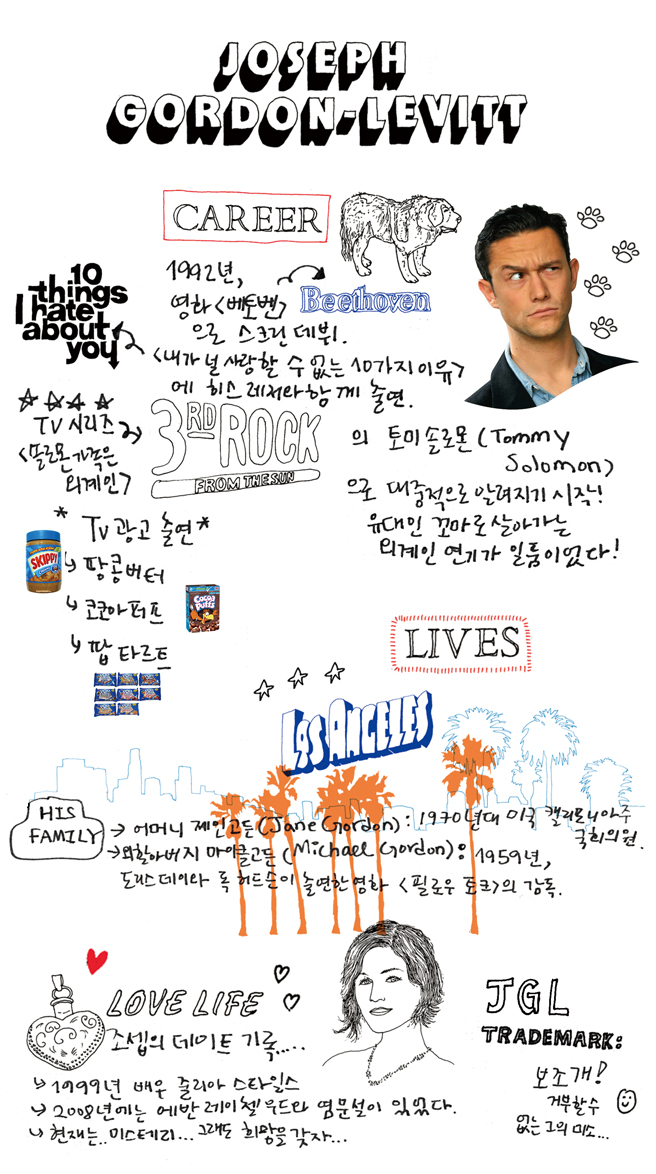 JOSEPH
GORDON-LEVITT
CAREER
1992년,
영화 <베토벤>
Beethoven
으로 스크린 데뷔.
10
things
I hate
about
you
<내가 널 사랑할 수 없는 10가지 이유>
에 히스 레저와 함께 출연.
TV 시리즈
<솔로몬 가족은
외계인>
3RD ROCK
FROM THE SUN
의 토미 솔로몬 (Tommy
Solomon)
으로 대중적으로 알려지기 시작!
유대인 꼬마로 살아가는
외계인 연기가 일품이었다!
* TV 광고 출연 *
SKIPPY
땅콩버터
코코아퍼프
COCOA PUFFS
팝 타르트
LIVES
LOS ANGELES
HIS
FAMILY
→ 어머니 제인고든 (Jane Gordon) : 1970년대 미국 캘리포니아주
국회의원.
→ 외할아버지 마이클고든 (Michael Gordon) : 1959년,
도리스 데이와 록 허드슨이 출연한 영화 <필로우 토크>의 감독.
LOVE LIFE
조셉의 데이트 기록.....
1999년 배우 줄리아 스타일스
2008년에는 에반 레이첼 우드와 염문설이 있었다.
현재는.. 미스테리... 그래도 희망을 갖자...
JGL
TRADEMARK:
보조개!
거부할수
없는 그의 미소...